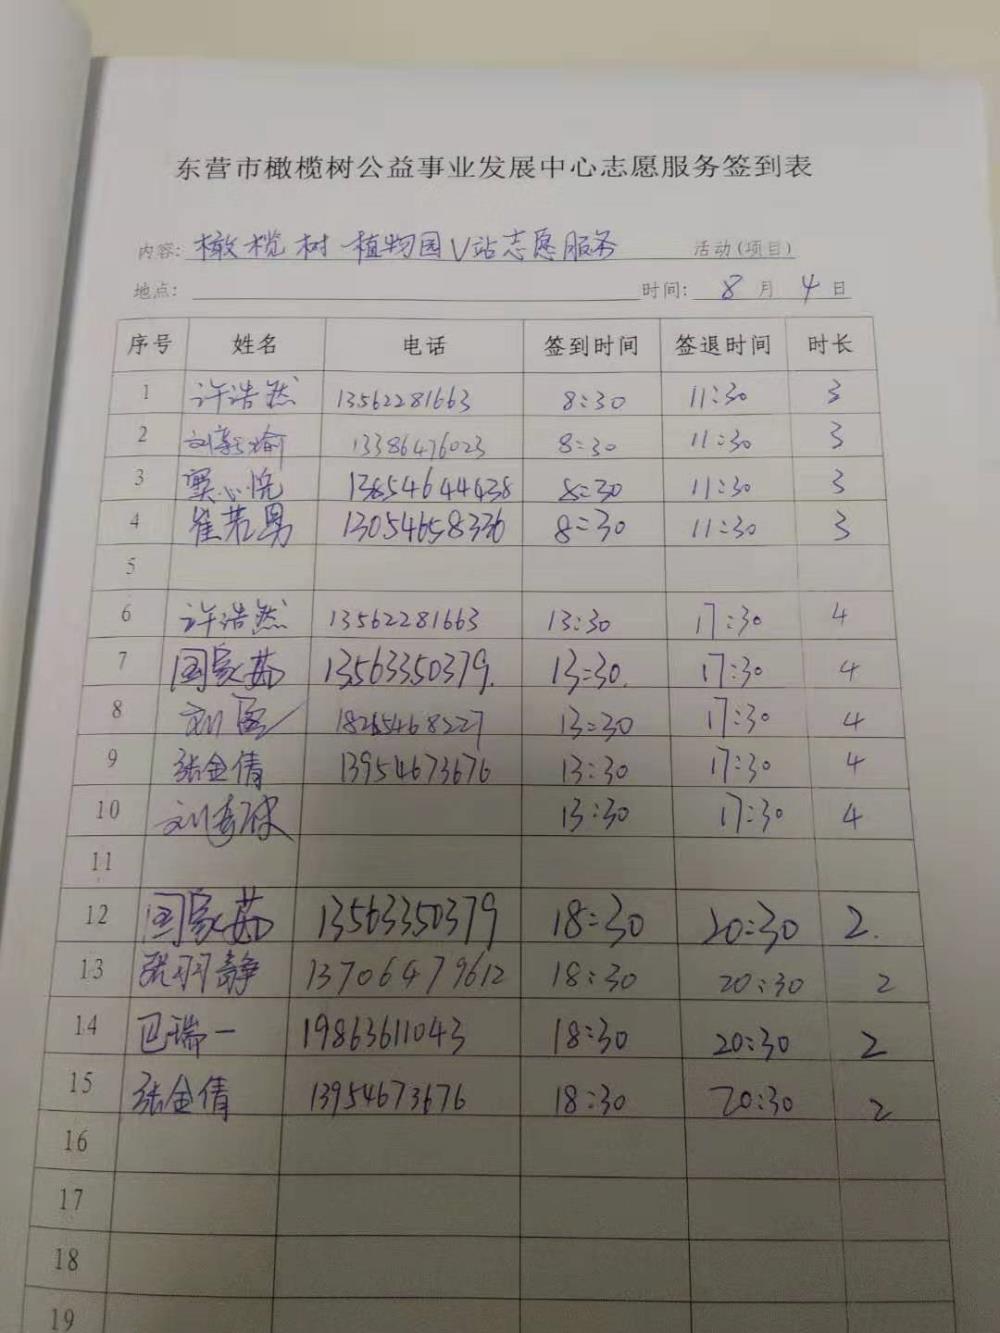 东营市橄榄树公益事业发展中心志愿服务签到表
内容: 橄榄树植物园V站志愿服务 活动(项目)
地点: 时间: 8 月 4 日
序号 姓名 电话 签到时间 签退时间 时长
1 许浩然 13562281663 8:30 11:30 3
2 13386476023 8:30 11:30 3
3 窦心悦 13854644438 8:30 11:30 3
4 崔若男 13054658336 8:30 11:30 3
5
6 许浩然 13562281663 13:30 17:30 4
7 国家茹 13563350379. 13:30. 17:30 4
8 18265468227 13:30 17:30 4
9 张金倩 13954673676 13:30 17:30 4
10 13:30 17:30 4
11
12 国家茹 13563350379 18:30 20:30 2.
13 张羽静 13706479612 18:30 20:30 2
14 巴瑞一 19863611043 18:30 20:30 2
15 张金倩 13954673676 18:30 20:30 2
16
17
18
19